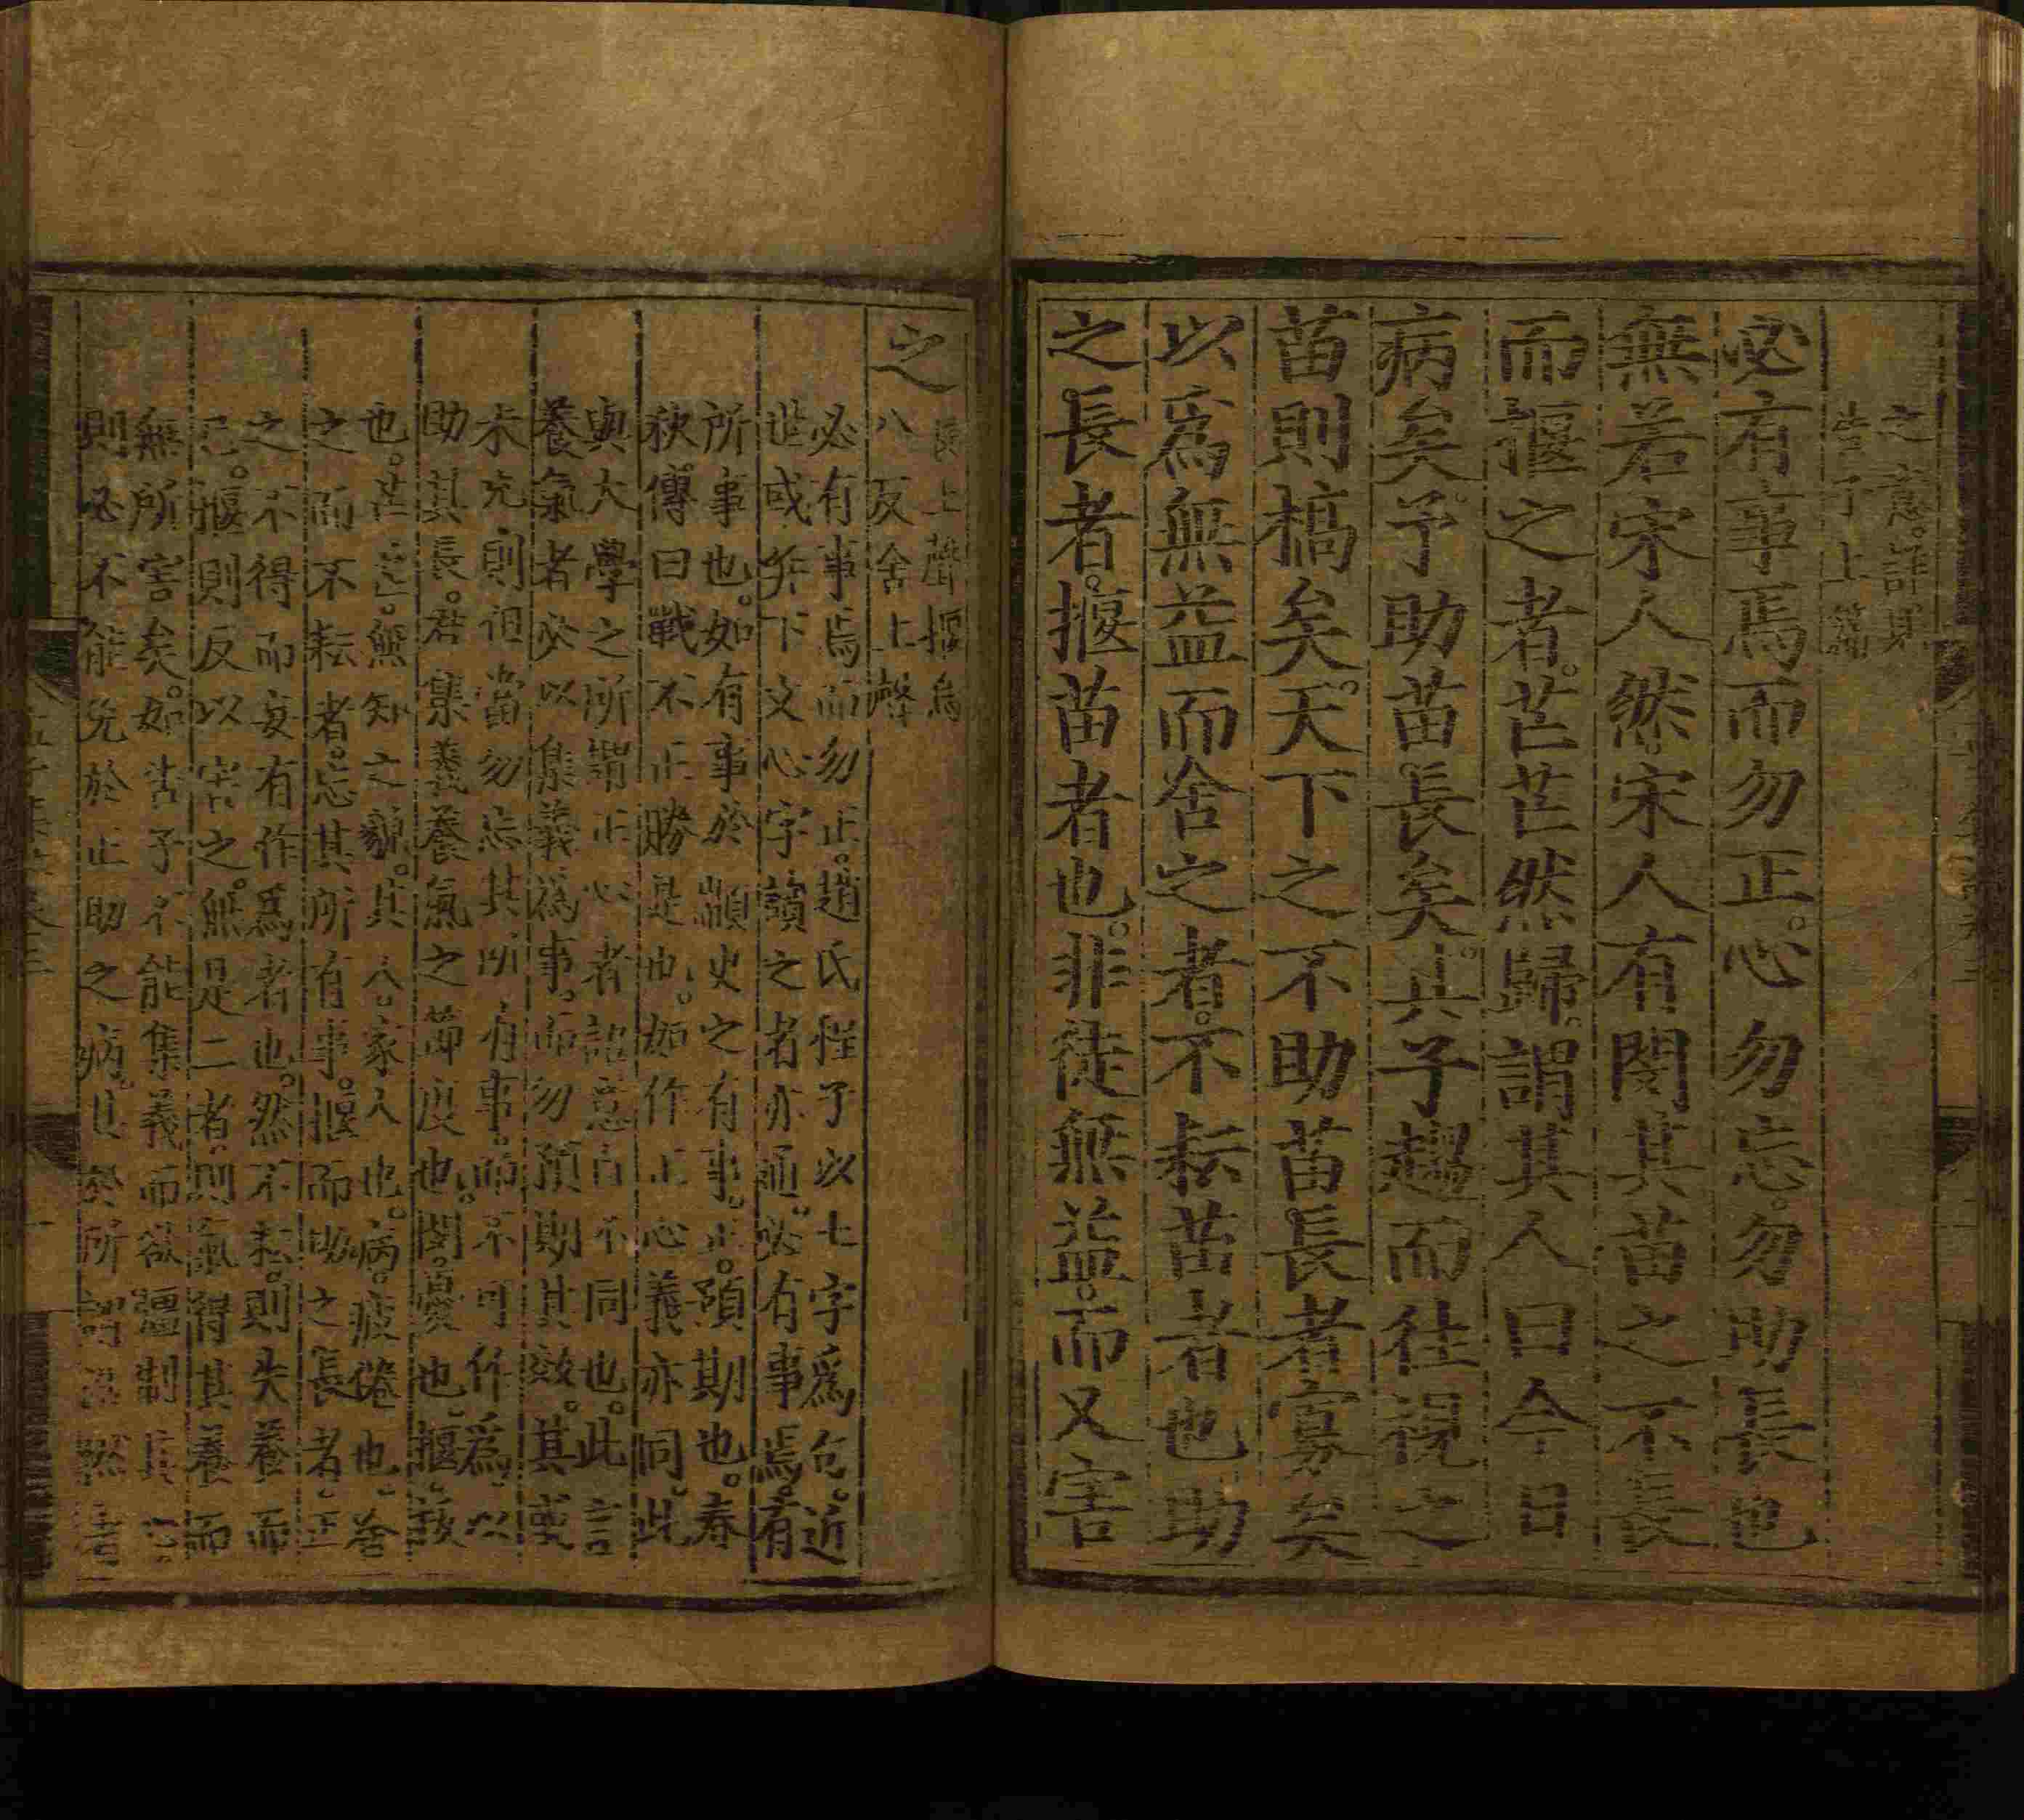 之意詳見
告子上篇
必有事焉而勿正。心勿忘。勿助長也
無若宋人然。宋人有閔其苗之不長
而揠之者。芒芒然歸。謂其人曰今日
病矣。予助苗長矣。其子趨而往視之
苗則槁矣。天下之不助苗長者寡矣
以爲無益而舍之者。不耘苗者也助
之長者。揠苗者也。非徒無益。而又害
之
長上聲揠烏
八反舍上聲
必有事焉而勿正。趙氏程子以七字爲句。近
世或幷下文心字讀之者亦通。必有事焉。有
所事也。如有事於顓臾之有事。正。預期也。春
秋傳曰戰不正勝是也。如作正心義亦同。此
與大學之所謂正心者語意自不同也。此言
養氣者必以集義爲事。而勿預期其效。其或
未充則但當勿忘其所有事。而不可作爲以
助其長。君集義養氣之節度也。閔。憂也。揠。拔
也。芒芒。無知之貌。其人。家人也。病。疲倦也。舍
之而不耘者。忘其所有事。揠而助之長者。正
之不得而妄有作爲者也。然不耘。則失養而
已。揠則反以害之。無是二者。則氣得其養而
無所害矣。如告子不能集義而欲彊制其心。
則必不能免於正助之病。其於所謂浩然者